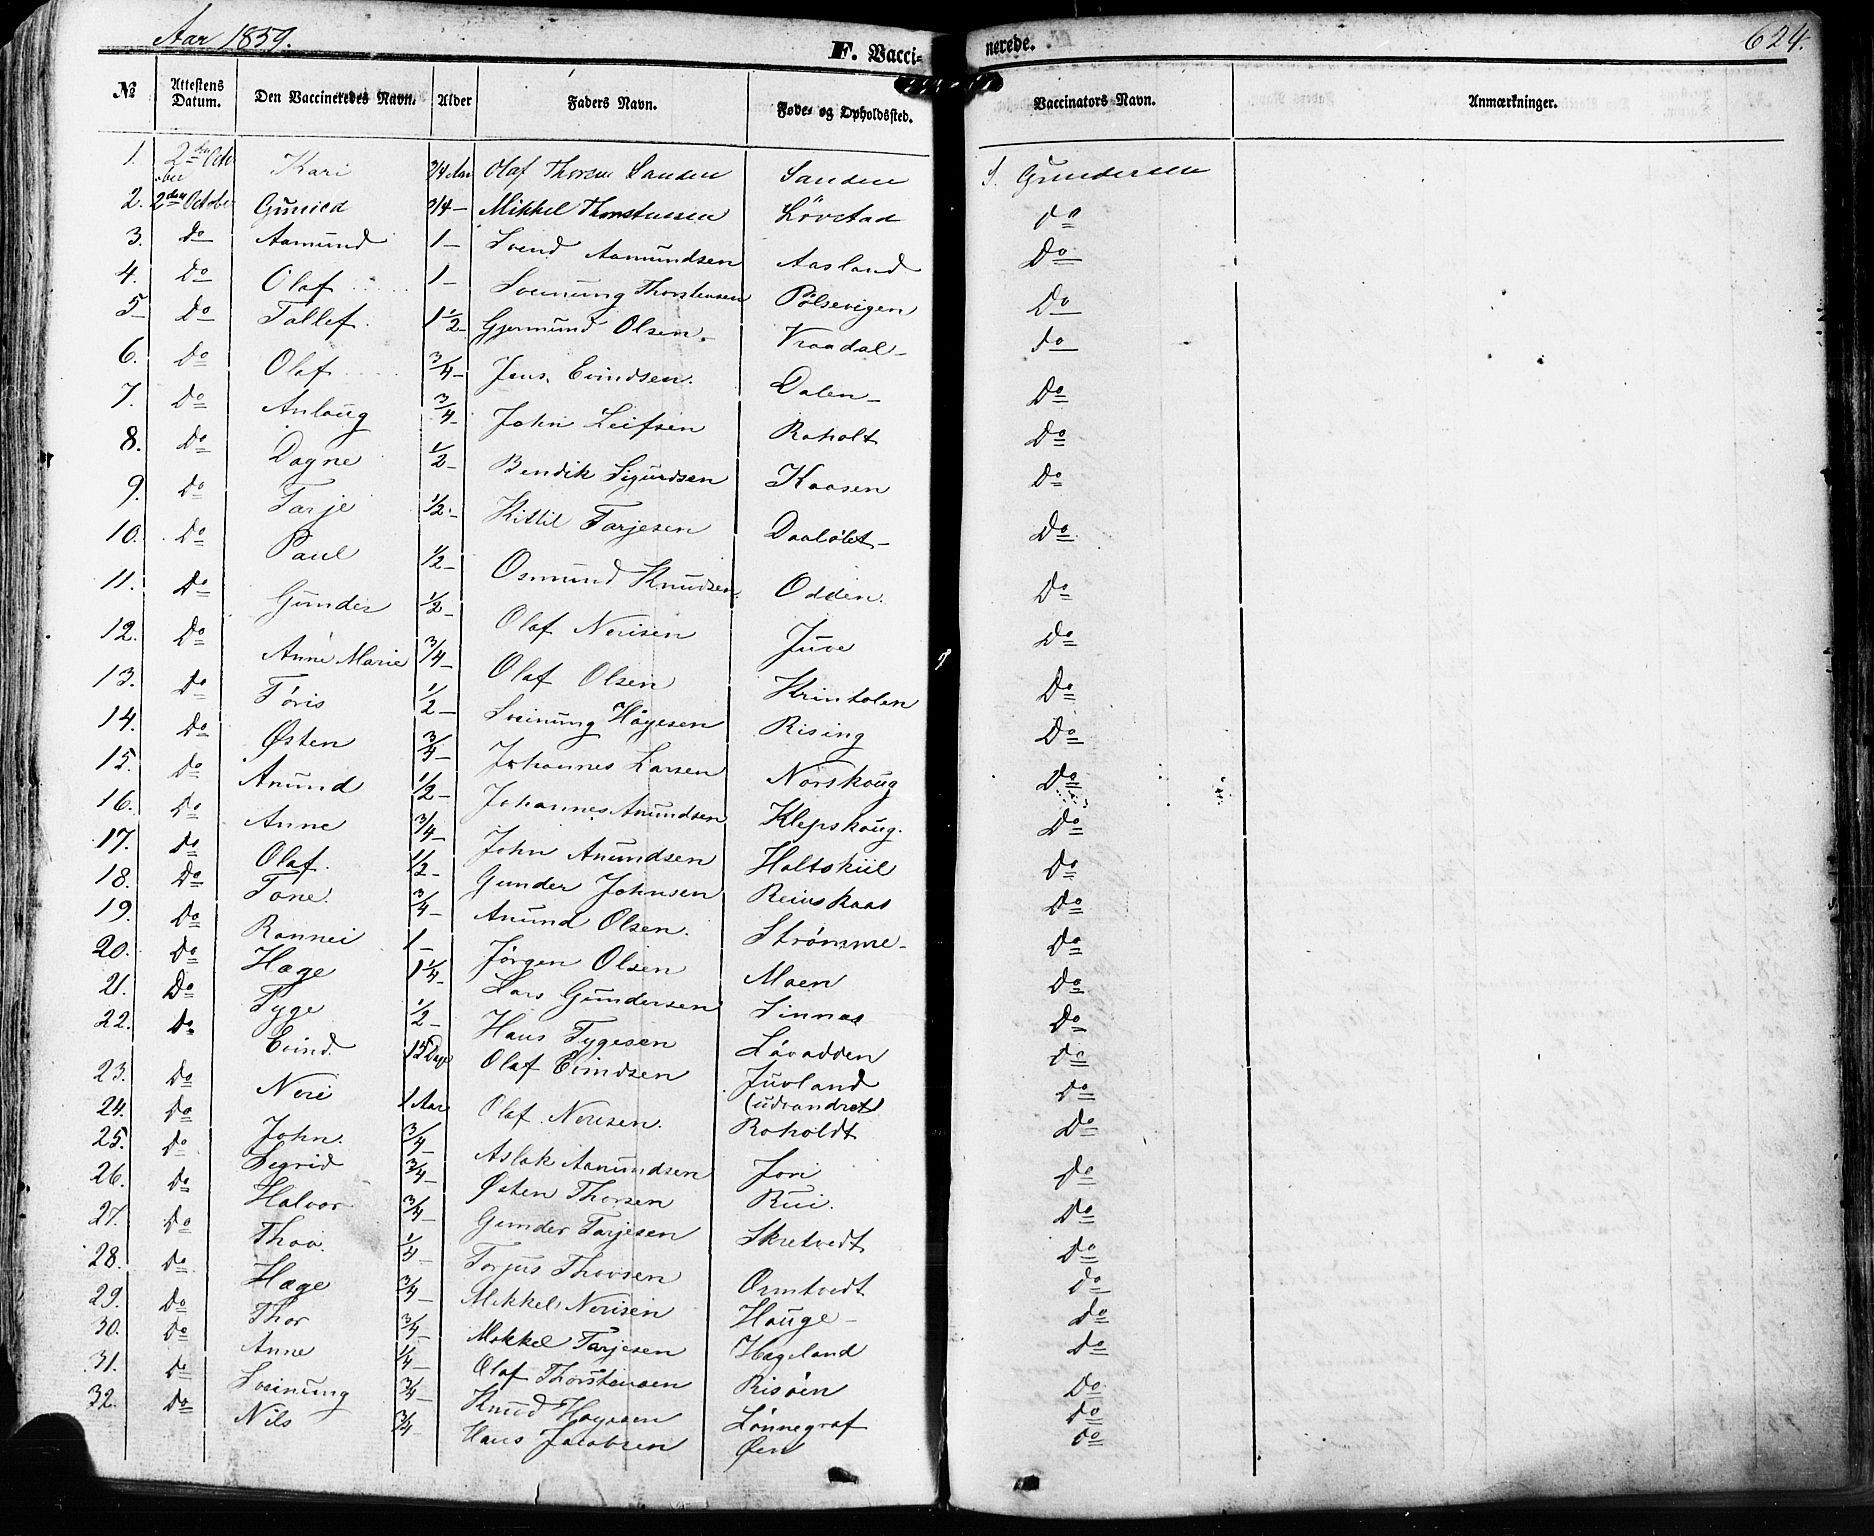 Aar 1859.
F. Vaccinerede.
624.
№ Attestens Datum. Den Vaccineredes Navn. Alder Faders Navn. Føde- og Opholdssted. Vaccinators Navn. Anmærkninger.
1. 2den October Kari 3/4 Aar Olaf Sanden Sanden S. Gundersen
2. 2den October Gunild 3/4 - Mikkel Thorstensen Løvstad do
3. Do Aamund 1 - Svend Aamundsen Aasland Do
4. Do Olaf 1 - Sveinung Thorstensen Pølsevigen Do
5 Do Tallef. 1 1/2 - Gjermund Olsen. Vraadal - do
6. Do Olaf 3/4 - Jens Evindsen. Dalen - Do
7. Do Anlaug 3/4 - John Leifsen Roholt Do
8. Do Dagne 1/2 - Bendik Sigurdsen Kaasen Do
9. Do Tarje 1/2 - Kittil Tarjesen Do
10. Do Paul 1/2 - Osmund Knudsen. Odden. Do
11. Do Gunder 1/2 - Olaf Nerisen Juve Do
12. Do Anne Marie 3/4 - Olaf Olsen Do
13. Do Tøris 1/2 - Sveinung Høyesen Rising Do
14. Do Østen 3/4 - Johannes Larsen Norskoug Do
15. Do Anund 1/2 - Johannes Anundsen Klepskoug. Do
16. Do Anne 3/4 - John Anundsen Holtskiil Do
17. Do Olaf. 1/2 - Gunder Johnsen Reinskaas Do
18. Do Tone. 3/4 - Anund Olsen. Strømme - Do
19. Do Rannei 1 - Jørgen Olsen Moen Do
20. Do Hæge 1 1/4 - Lars Gundersen Sinnas Do
21. Do Tyge 1/2 - Hans Tygesen Løvodden Do
22. Do Evind. 15 Dage Olaf Evindsen Juvland (udvandret) do
23. Do Neri 1 Aar Olaf Nerisen. Roholdt Do
24. Do John. 3/4 - Aslak Aamundsen Jori Do
25. Do Segrid 3/4 - Østen Thorsen Rui. Do
26. Do Halvor 3/4 - Gunder Tarjesen Skretvedt Do
27. Do Thov. 1/4 - Torjus Thovsen Ormtvedt Do
28. Do Hæge 3/4 - Mikkel Nerisen Hauge - Do
29. Do Thor 3/4 - Mikkel Tarjesen Hægeland Do
30. Do Anne 1/4 - Olaf Thorstensen Risøen Do
31. Do Sveinung 3/4 - Knud Lønnegraf Do
32. Do Nils 3/4 - Hans Jacobsen Øen Do